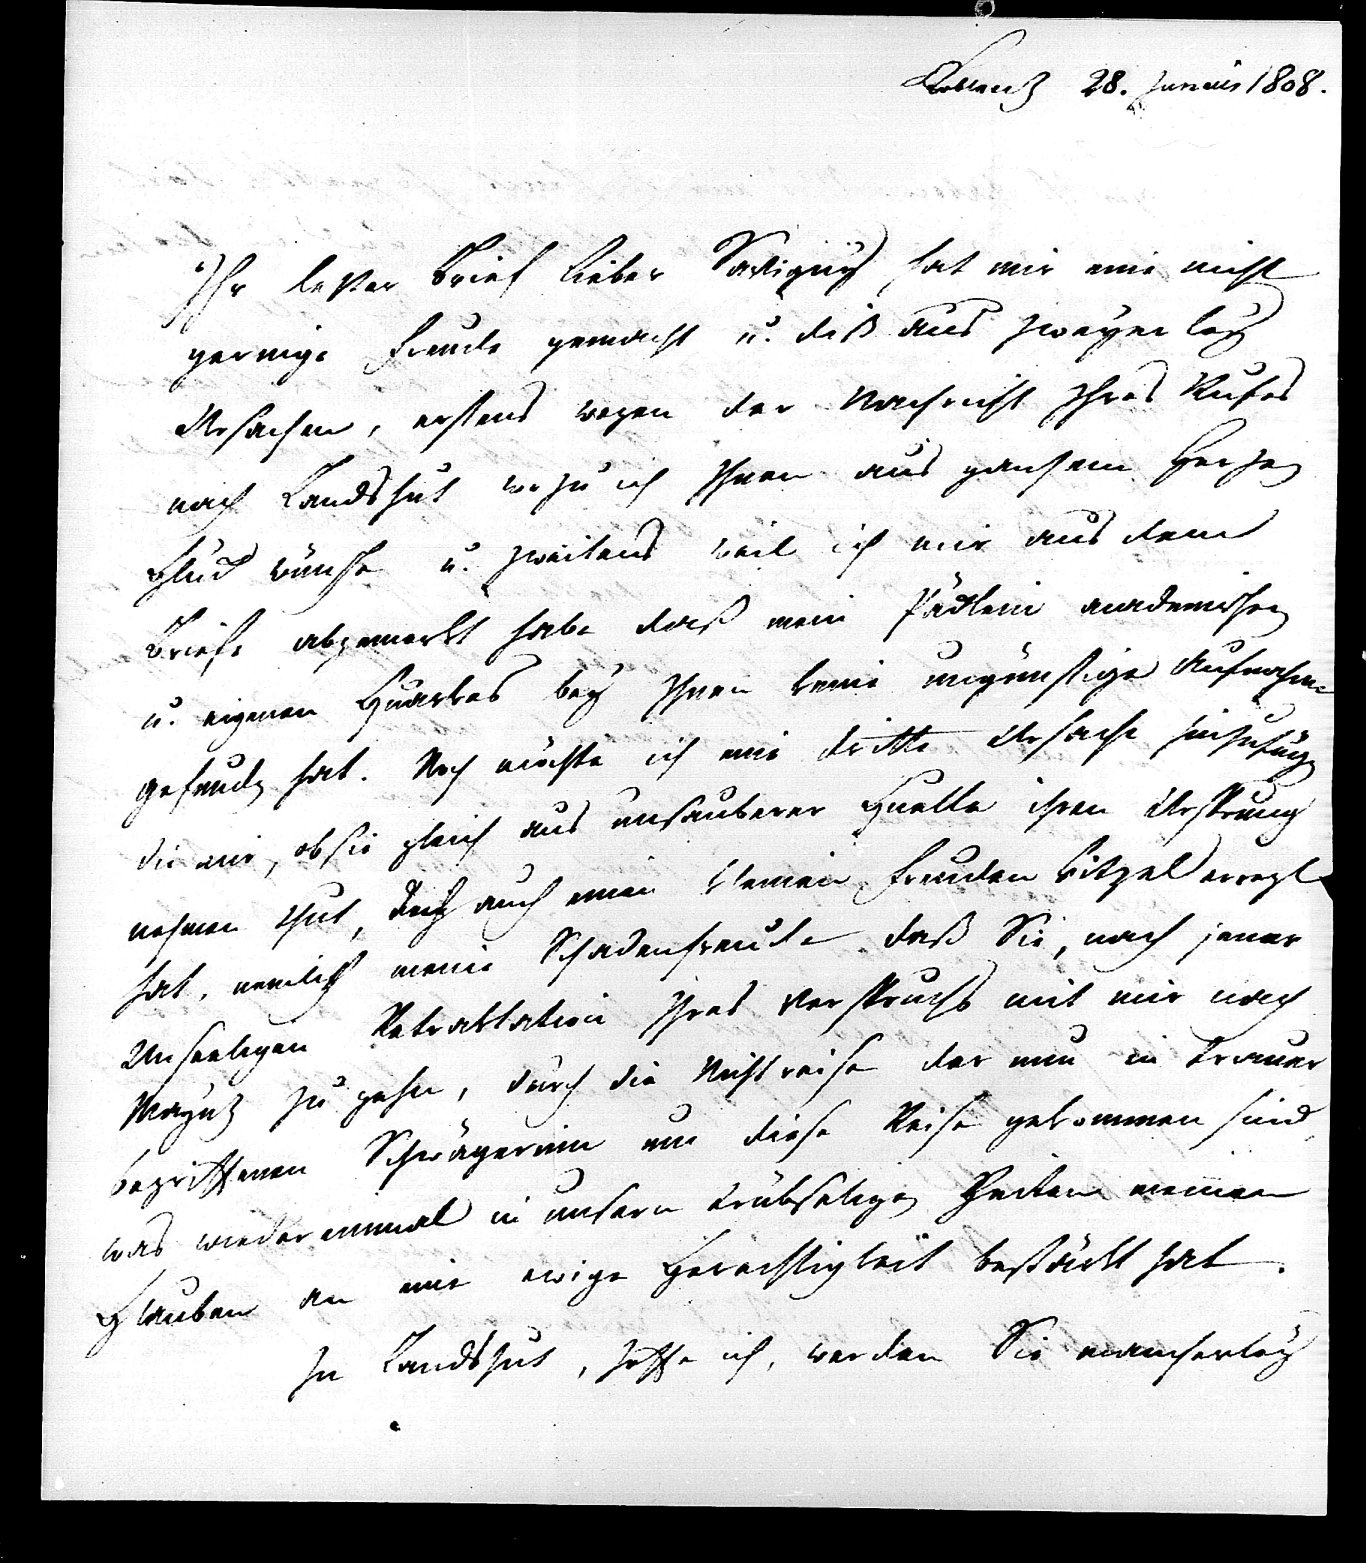 Coblenz 28. Junius 1808.
Ihr letzter Brief lieber Savigny hat mir eine nicht
geringe Freude gemacht u. diß aus zweyerley
Ursachen, erstens wegen der Nachricht Ihres Rufes
nach Landshut wozu ich Ihnen aus ganzem Herzen
Glück wünsche u. zweitens weil ich mir aus dem
Briefe abgemerkt habe daß mein academischen
u. eigenen bey Ihnen keine ungünstige Aufnahme
gefunden hat. Noch möchte ich eine dritte Ursache hinzufügen
die mir, ob sie gleich aus unsauberer Quelle ihren Ursprung
nehmen thut, doch auch einen kleinen Freuden Kitzel erregt
hat, nemlich meine Schadenfreude daß Sie, nach jener
Unseeligen Retraktation Ihres Verspruchs mit mir nach
Maynz zu gehn, durch die Nichtreise der nun in Trauer
begriffenen Schwägerinn um diese Reise gekommen sind,
was wieder einmal in unsern trübseligen Zeiten meinen
Glauben an eine ewige Gerechtigkeit bestärkt hat.
In Landshut, hoffe ich, werden Sie mancherley